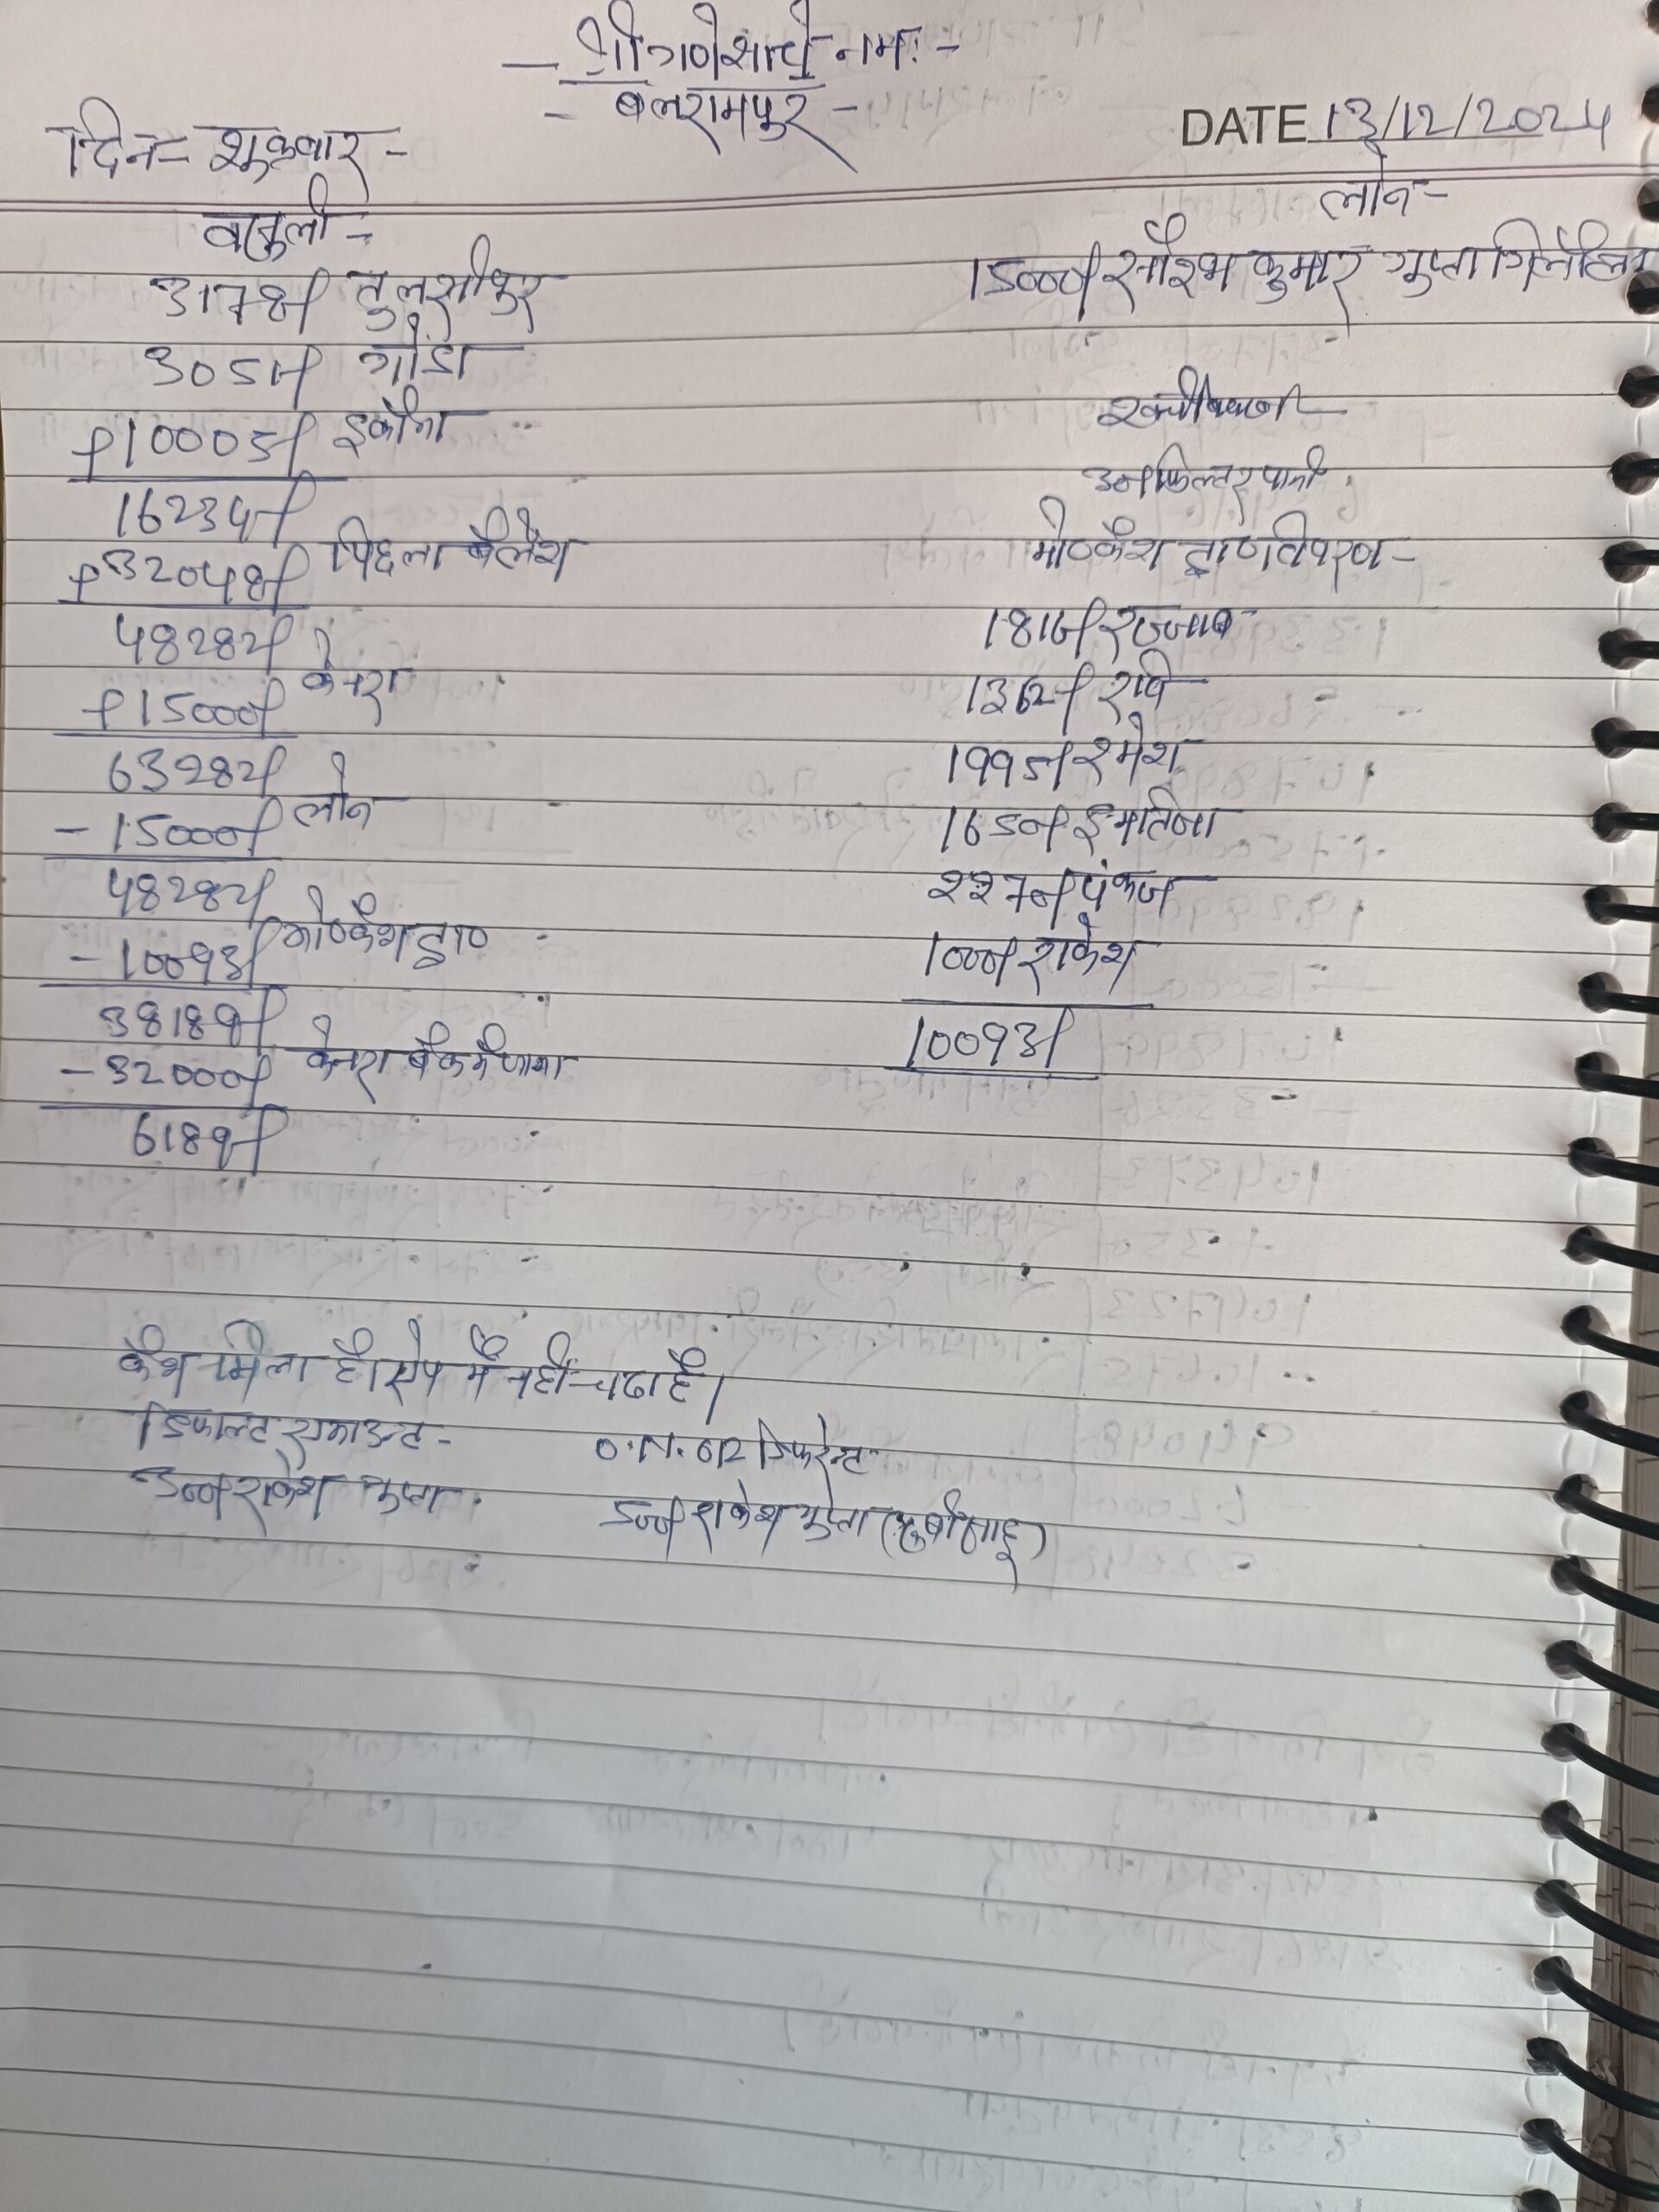 - श्री गणेशाये नमः -
- बलरामपुर -
दिन = शुक्रवार -
DATE 13/12/2024
वसुली -
3178/ तुलसीपुर
3051/ गोंडा
+10005/ इकौना
16234/
+32048/ पिछला बैलेंश
48282/
+15000/ केनरा
63282/
-15000/ लोन
48282/
-10093/ मो०कैश द्वा०
38189/
-32000/ केनरा बैंक में जमा
6189/
लोन -
15000/ सौरभ कुमार गुप्ता
30/ फिल्टर पानी
मो०कैश द्वा० विवरण -
1816/ रज्जाब
1362/ रवि
1995/ रमेश
1650/
2270/ पंकज
1000/ राकेश
10093/
कैश मिला है। ऐप में नही चढा है।
डिफाल्ट एमाउन्ट -
300/ राकेश गुप्ता
डिफरेन्ट
500/ राकेश गुप्ता